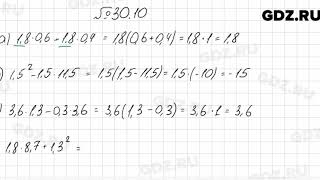 GDZ.RU
№30.10
а) 1,8·0,6 - 1,8·0,4 = 1,8(0,6+0,4) = 1,8·1 = 1,8
) 1,5² - 1,5·11,5 = 1,5(1,5-11,5) = 1,5·(-10) = -15
) 3,6·1,3 - 0,3·3,6 = 3,6(1,3-0,3) = 3,6·1 = 3,6
1,8·8,7+1,3² =